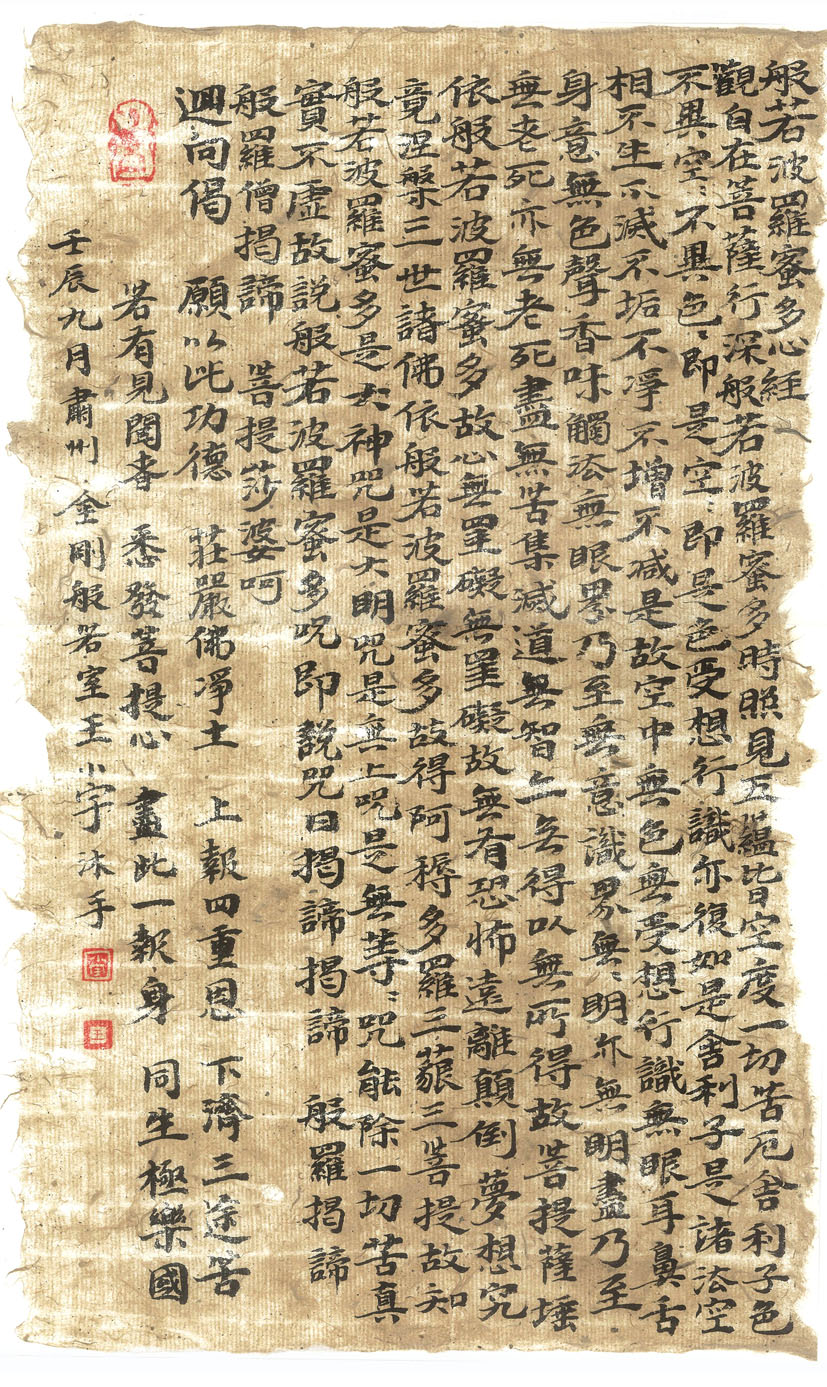 般若波羅蜜多心經
觀自在菩薩行深般若波羅蜜多時照見五蘊皆空度一切苦厄舍利子色
不異空〻不異色〻即是空〻即是色受想行識亦復如是舍利子是諸法空
相不生不滅不垢不淨不增不減是故空中無色無受想行識無眼耳鼻舌
身意無色聲香味觸法無眼界乃至無意識界無〻明亦無明盡乃至
無老死亦無老死盡無苦集滅道無智亦無得以無所得故菩提薩埵
依般若波羅蜜多故心無罣礙無罣礙故無有恐怖遠離顛倒夢想究
竟涅槃三世諸佛依般若波羅蜜多故得阿耨多羅三藐三菩提故知
般若波羅蜜多是大神咒是大明咒是無上咒是無等〻咒能除一切苦真
實不虛故說般若波羅蜜多咒即說咒曰揭諦揭諦 般羅揭諦
般羅僧揭諦 菩提莎婆呵
迴向偈 願以此功德 莊嚴佛淨土 上報四重恩 下濟三途苦
若有見聞者 悉發菩提心 盡此一報身 同生極樂國
壬辰九月肅州金剛般若室王小宇沐手